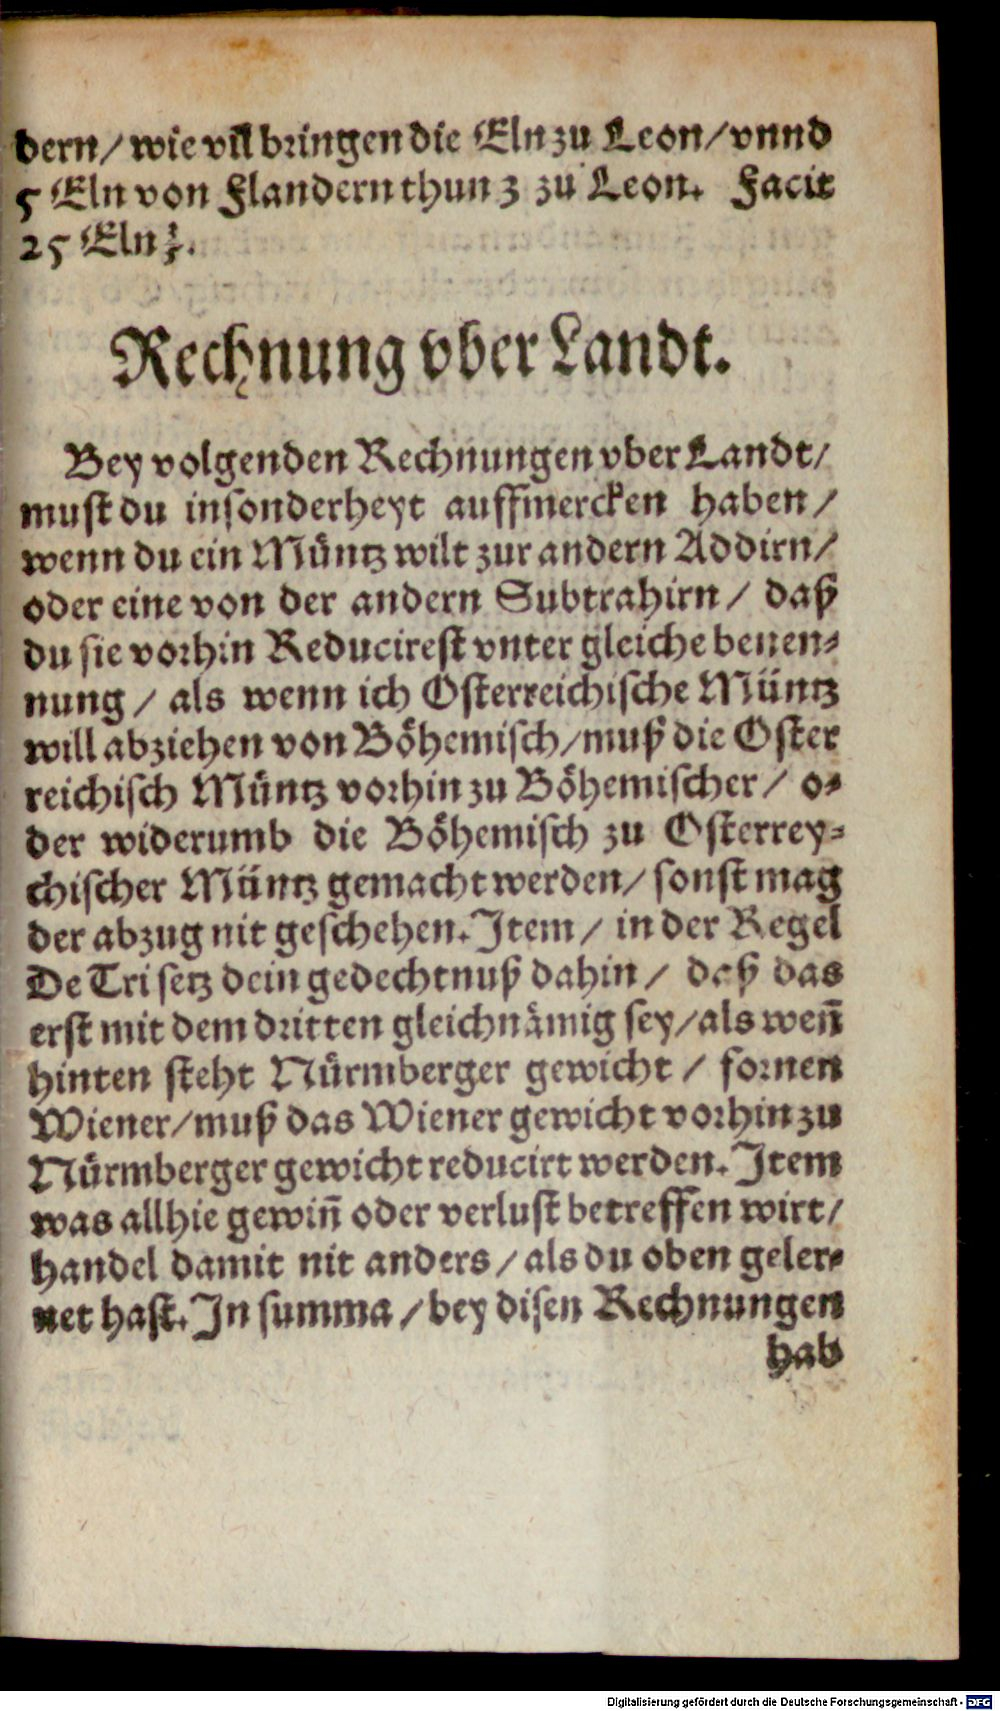 dern/ wie vil bringen die Eln zu Leon/ vnnd
5 Eln von Flandern thun 3 zu Leon. Facit
25 Eln
Rechnung vber Landt.
Bey volgenden Rechnungen vber Landt/
must du insonderheyt auffmercken haben/
wenn du ein Müntz wilt zur andern Addirn/
oder eine von der andern Subtrahirn/ daß
du sie vorhin Reducirest vnter gleiche benen-
nung/ als wenn ich Osterreichische Müntz
will abziehen von Böhemisch/ muß die Oster
reichisch Müntz vorhin zu Böhemischer/ o-
der widerumb die Böhemisch zu Osterrey-
chischer Müntz gemacht werden/ sonst mag
der abzug nit geschehen. Item/ in der Regel
De Tri setz dein gedechtnuß dahin/ daß das
erst mit dem dritten gleichnämig sey/ als weñ
hinten steht Nürmberger gewicht/ fornen
Wiener/ muß das Wiener gewicht vorhin zu
Nürmberger gewicht reducirt werden. Item
was allhie gewiñ oder verlust betreffen wirt/
handel damit nit anders/ als du oben geler-
net hast. In summa/ bey disen Rechnungen
hab
Digitalisierung gefördert durch die Deutsche Forschungsgemeinschaft - DFG